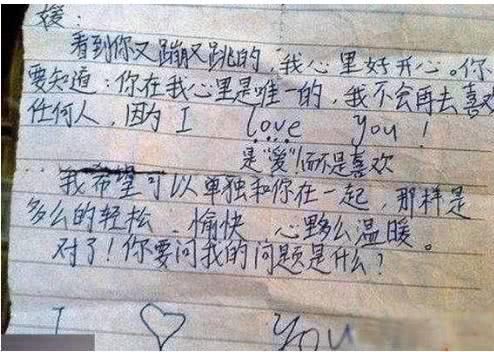 媛：
看到你又蹦又跳的，我心里好开心。你
要知道：你在我心里是唯一的，我不会再去喜欢
任何人，因为 I love you！
是“爱”！而不是喜欢
我希望可以单独和你在一起，那样是
多么的轻松、愉快 心多么温暖。
对了！你要问我的问题是什么？
I ♡ You